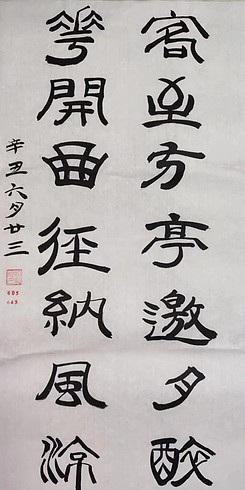 客至方亭邀月醉
華開曲徑納風涼
辛丑六月廿三